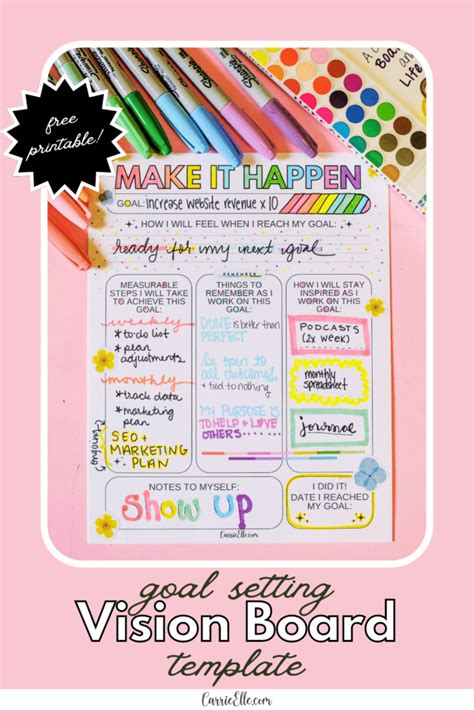 free
printable!
Sharpie
A C
Board
and
Life
MAKE IT HAPPEN
GOAL: increase website revenue x 10
HOW I WILL FEEL WHEN I REACH MY GOAL:
ready for my next goal
REMEMBER
MEASURABLE
STEPS I WILL TAKE
TO ACHIEVE THIS
GOAL:
weekly
*to do list
*plan
adjustments
monthly
*track data
*marketing
plan
SEO +
MARKETING
PLAN
THINGS TO
REMEMBER AS I
WORK ON THIS
GOAL:
DONE is better than
PERFECT
be open to
all outcomes
+ tied to nothing
MY PURPOSE IS
TO HELP + LOVE
OTHERS....
HOW I WILL STAY
INSPIRED AS I
WORK ON THIS
GOAL:
PODCASTS
(2x WEEK)
monthly
spreadsheet
journal
NOTES TO MYSELF:
Show UP
I DID IT!
DATE I REACHED
MY GOAL:
CarrieElle.com
goal setting
Vision Board
template
CarrieElle.com